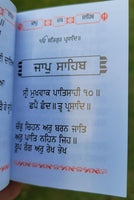 ਜਾਪੁ ਸਾਹਿਬ
ੴ ਸਤਿਗੁਰ ਪ੍ਰਸਾਦਿ॥
ਜਾਪੁ ਸਾਹਿਬ
ਸ੍ਰੀ ਮੁਖਵਾਕ ਪਾਤਿਸਾਹੀ ੧੦॥
ਛਪੈ ਛੰਦ॥ ਤ੍ਵ ਪ੍ਰਸਾਦਿ॥
ਚੱਕ੍ਰ ਚਿਹਨ ਅਰੁ ਬਰਨ ਜਾਤਿ
ਅਰੁ ਪਾਤਿ ਨਹਿਨ ਜਿਹ॥
ਰੂਪ ਰੰਗ ਅਰੁ ਰੇਖ ਭੇਖ